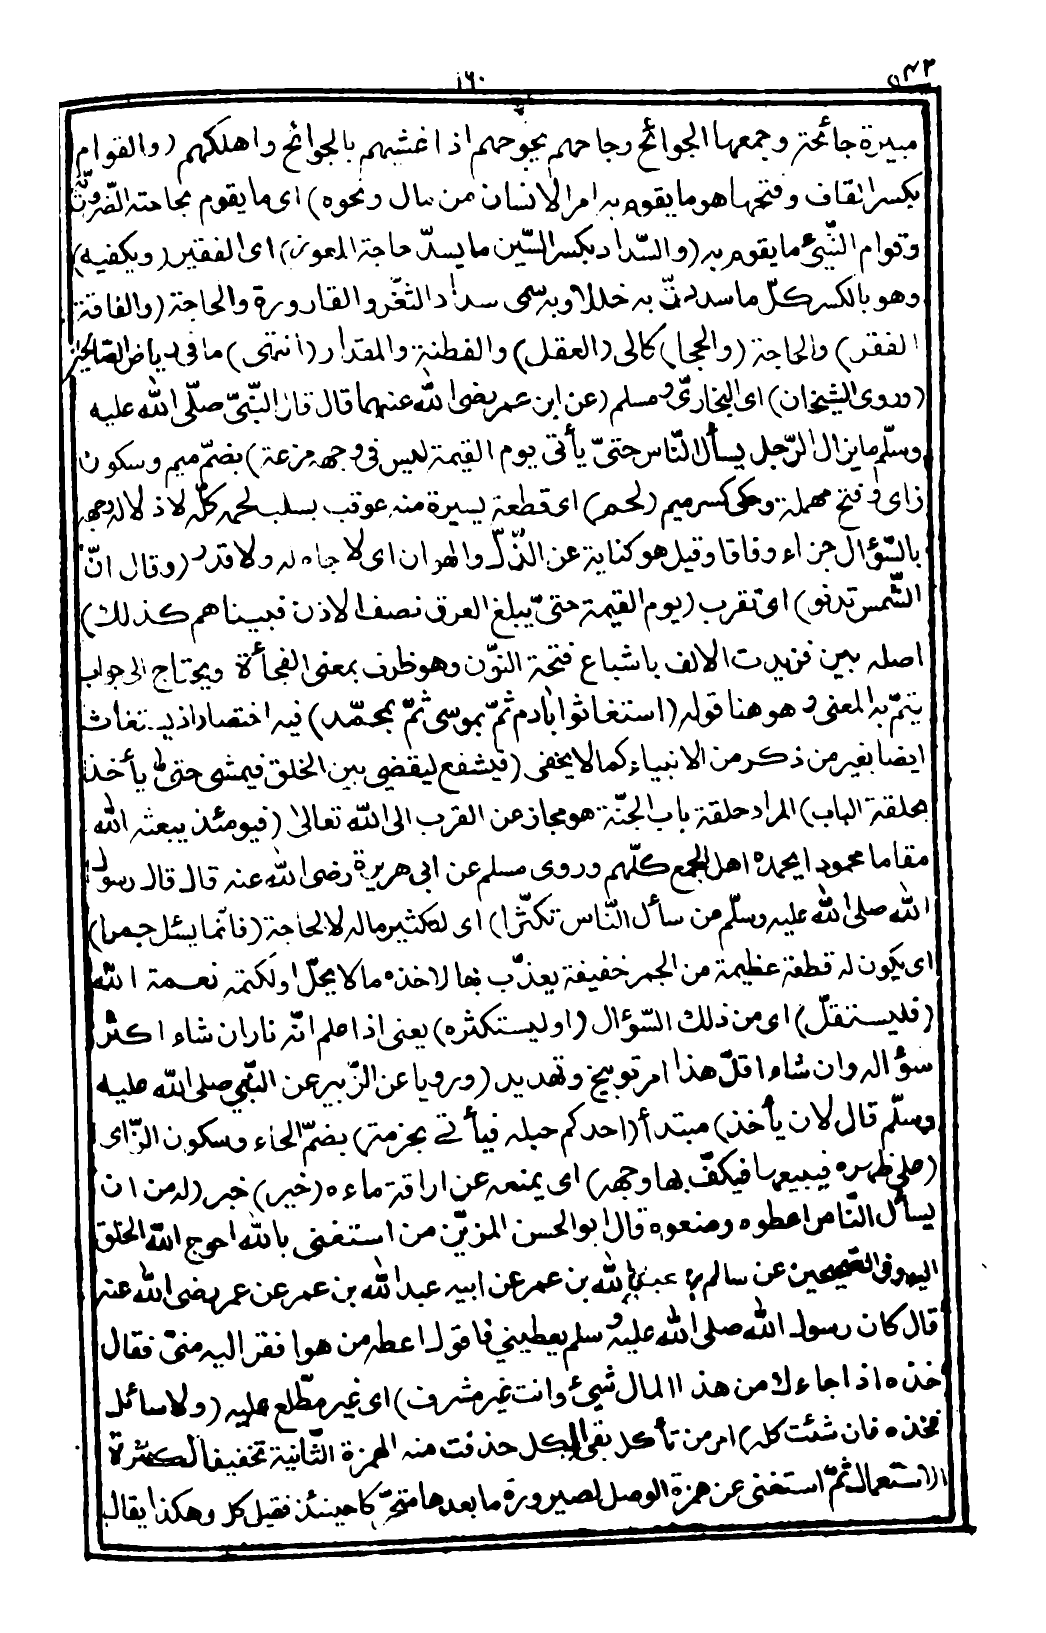 ١٦٠
مبيرة جائحة وجمعها الجوائح وجاحهم يجوحهم اذا غشيهم بالجوائح واهلكهم (والقوام
بكسر القاف وفتحها هو ما يقوم به امر الانسان من مال ونحوه) اى ما يقوم بحاجته الضّروريّة
وقوام الشّيئ ما يقوم به (والسّداد بكسر السّين ما يسدّ حاجة المعوز) اى الفقير (ويكفيه)
وهو بالكسر كلّ ما سددتّ به خللا وبه سمى سداد الثّغر والقارورة والحاجة (والفاقة
الفقر) والحاجة (والحجا) كالى (العقل) والفطنة والمقدار (انتهى) ما فى رياض الصّالحين
(وروى الشيخان) اى البخاريّ ومسلم (عن ابن عمر رضى الله عنهما قال قال النّبيّ صلّى الله عليه
وسلّم ما يزال الرّجل يسأل النّاس حتىّ يأتى يوم القيمة ليس فى وجهه مزعة) بضمّ ميم وسكون
زاى وفتح مهملة وحكى كسر ميم (لحم) اى قطعة يسيرة منه عوقب بسلب لحمه كلّه لاذلاله وجهه
بالسّؤال جزاء وفاقا وقيل هو كناية عن الذّلّ والهوان اى لا جاه له ولا قدر (وقال انّ
الشّمس تدنو) اى تقرب (يوم القيمة حتىّ يبلغ العرق نصف الاذن فبيناهم كذلك)
اصله بين فزيدت الالف باشباع فتحة النّون وهو ظرف بمعنى الفجأة ويحتاج الى جواب
يتمّ به المعنى وهو هنا قوله (استغاثوا بادم ثمّ بموسى ثمّ بمحمّد) فيه اختصار اذ يستغاث
ايضا بغير من ذكر من الانبياء كما لا يخفى (فيشفع ليقضى بين الخلق فيمشى حتىّ يأخذ
بحلقة الباب) المراد حلقة باب الجنّة هو مجاز عن القرب الى الله تعالى (فيومئذ يبعثه الله
مقاما محمودا يحمده اهل الجمع كلّهم وروى مسلم عن ابى هريرة رضى الله عنه قال قال رسول
الله صلى الله عليه وسلّم من سأل النّاس تكثّرا) اى لتكثير ماله لا لحاجة (فانّما يسئل جمرا)
اى يكون له قطعة عظيمة من الجمر خفيفة يعذّب بها لاخذه ما لا يحلّ او لكتمه نعمة الله
(فليستقلّ) اى من ذلك السّؤال (او ليستكثره) يعنى اذا علم انّه نار ان شاء اكثر
سؤاله وان شاء اقلّ هذا امر توبيخ وتهديد (ورويا عن الزّبير عن النّبي صلى الله عليه
وسلّم قال لان يأخذ) مبتدأ (احدكم حبله فيأتى بحزمة) بضمّ الحاء وسكون الزّاى
(على ظهره فيبيعها فيكفّ بها وجهه) اى يمنعه عن اراقة ماءه (خير) خبر (له من ان
يسأل النّاس اعطوه ومنعوه قال ابو الحسن المزيّن من استغنى بالله احوج الله الخلق
اليه وفى الصّحيحين عن سالم بن عبد الله بن عمر عن ابيه عبد الله بن عمر عن عمر رضى الله عنه
قال كان رسول الله صلى الله عليه وسلم يعطيني فاقول اعطه من هو افقر اليه منىّ فقال
خذه اذا جاءك من هذا المال شيئ وانت غير مشرف) اى غير مطّلع عليه (ولا سائل
فخذه فان شئت كله) امر من تأكل بقى الكل حذفت منه الهمزة الثّانية تخفيفا لكثرة
الاستعمال ثمّ استغنى عن همزة الوصل لصيرورة ما بعدها متحرّكا حينئذ فقيل كل وهكذا يقال